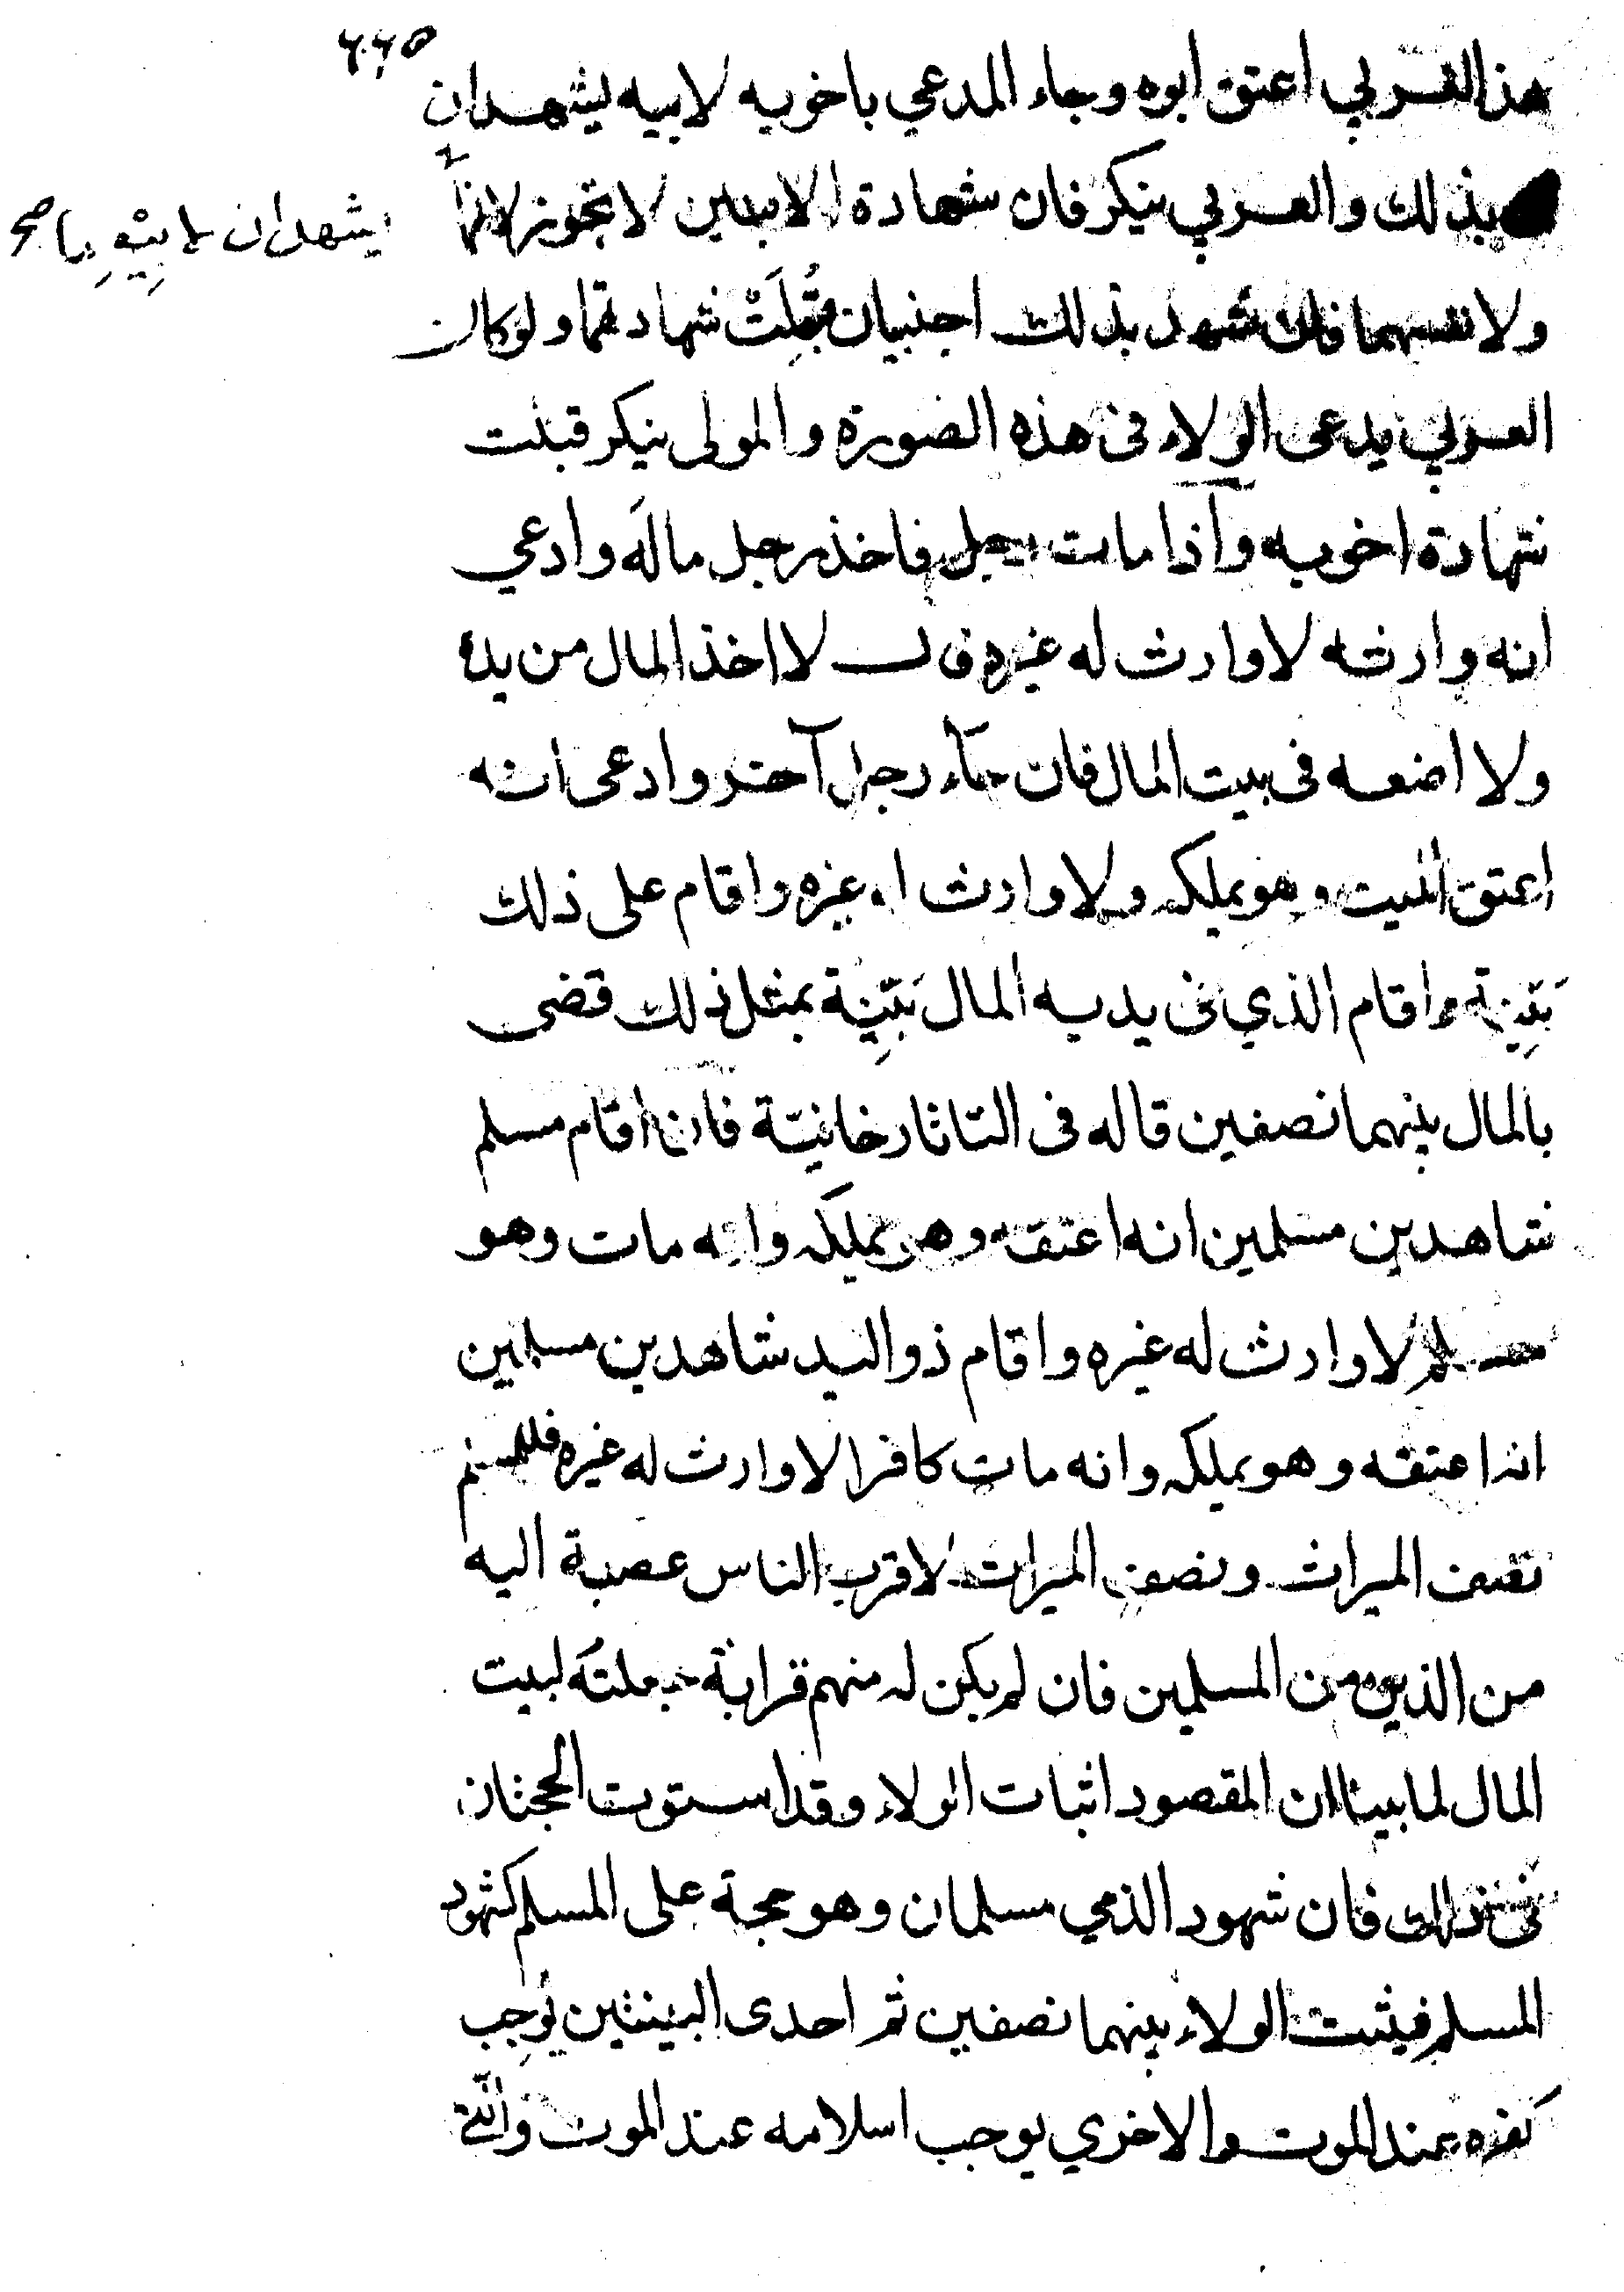 ٢٢٥
هذا العربي اعتق ابوه وجاء المدعي باخويه لابيه ليشهدان
بذلك والعربي ينكر فان شهادة الابنين لا تجوز لانها
يشهدان لابيهما صح
ولانفسهما فان شهد بذلك اجنبيان قُبِلَتْ شهادتهما ولو كان
العربي يدعى الولاء فى هذه الصورة والمولى ينكر قبلت
شهادة اخويه واذا مات رجل فاخذ رجل ماله وادعي
انه وارثه لا وارث له غيره قال لا اخذ المال من يده
ولا اضعه فى بيت المال فان جآء رجل آخر وادعى انه
اعتق الميت وهو يملكه ولا وارث له غيره واقام على ذلك
بَيِّنة واقام الذي فى يديه المال بَيِّنة بمثل ذلك قضى
بالمال بينهما نصفين قاله فى التاتارخانيّة فان اقام مسلم
شاهدين مسلمين انه اعتقه وهو يملكه وانه مات وهو
مسلم لا وارث له غيره واقام ذو اليد شاهدين مسلمين
انه اعتقه وهو يملكه وانه مات كافرا لا وارث له غيره فللمسلم
نصف الميراث ونصف الميراث لاقرب الناس عصبة اليه
من الذين من المسلمين فان لم يكن له منهم قرابة جعلته لبيت
المال لما بينا ان المقصود اثبات الولاء وقد استوت الحجتان
فى ذلك فان شهود الذمي مسلمان وهو حجة على المسلم كشهود
المسلم فيثبت الولاء بينهما نصفين ثم احدى البينتين يُوجِب
كفره عند الموت والاخري يوجب اسلامه عند الموت والّتى